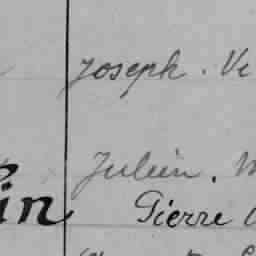 Joseph. Vi
Julien. M
in
Pierre